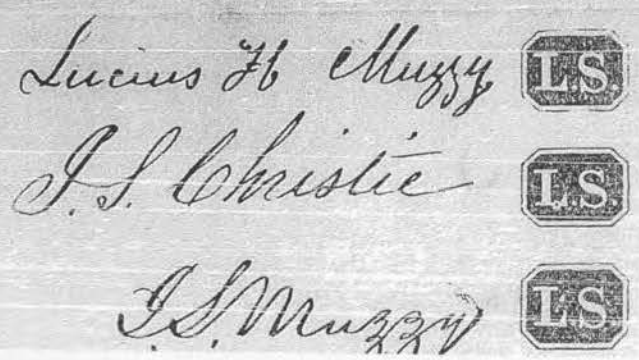 Lucius H Muzzy L.S.
J. S. Christie L.S.
J. S. Muzzy L.S.